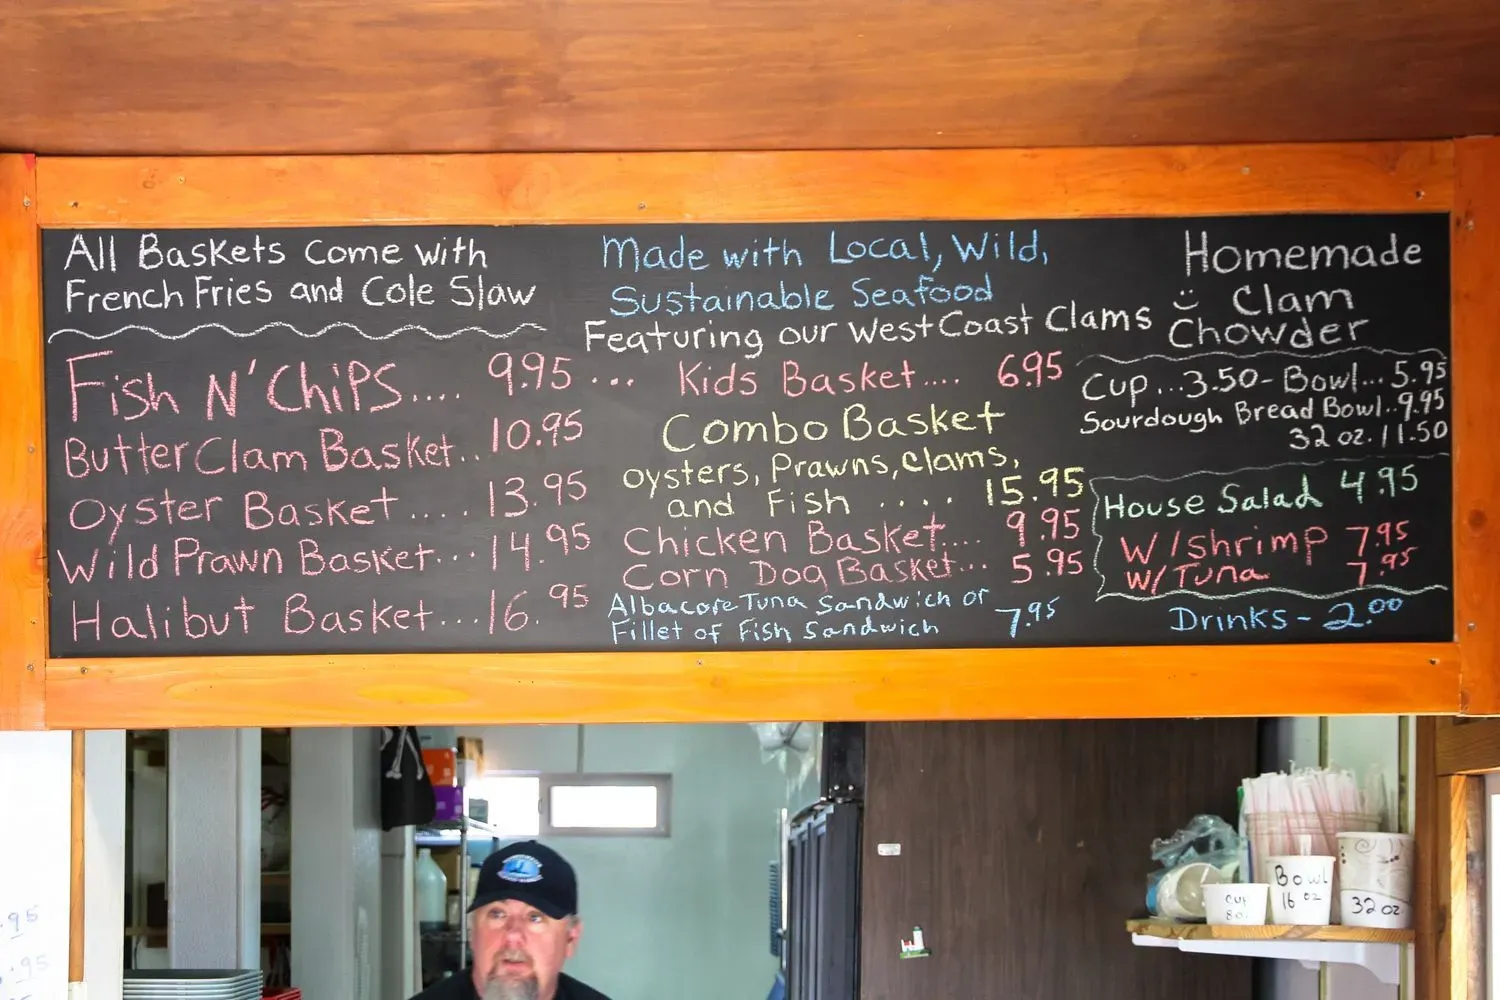 All Baskets come with
French Fries and Cole Slaw
Fish N' Chips.... 9.95 ...
Butter Clam Basket.. 10.95
Oyster Basket ..... 13.95
Wild Prawn Basket... 14.95
Halibut Basket... 16.95
Made with Local, Wild,
Sustainable Seafood
Featuring our West Coast Clams
Kids Basket.... 6.95
Combo Basket
oysters, Prawns, clams,
and Fish .... 15.95
Chicken Basket.... 9.95
Corn Dog Basket... 5.95
Albacore Tuna Sandwich or
Fillet of Fish Sandwich 7.95
Homemade
Clam
Chowder
Cup...3.50- Bowl... 5.95
Sourdough Bread Bowl..9.95
32 oz. 11.50
House Salad 4.95
W/shrimp 7.95
W/Tuna 7.95
Drinks - 2.00
.95
.95
CUP
8oz
Bowl
16 oz
32 oz.